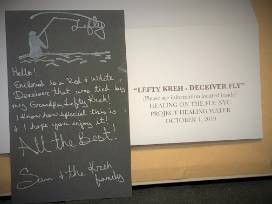 Lefty
Hello!
Enclosed is a Red & White
Deceiver that was tied by
my Grandpa, Lefty Kreh!
I know how special this is
& I hope you enjoy it!
All the Best!
Sam & the Kreh
family
"LEFTY KREH - DECEIVER FLY"
(Please see information located inside)
HEALING ON THE FLY, NYC
PROJECT HEALING WATER
OCTOBER 1, 2019